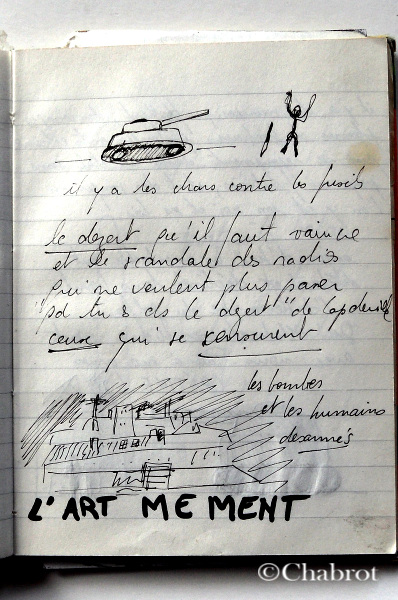 il y a les chars contre les fusils
le dezert qu'il faut vaincre
et le scandale des radios
qui ne veulent plus parler
"sd tu s ds le dezert" de
ceux qui se
les bombes
et les humains
desarmés
L'ART ME MENT
©Chabrot